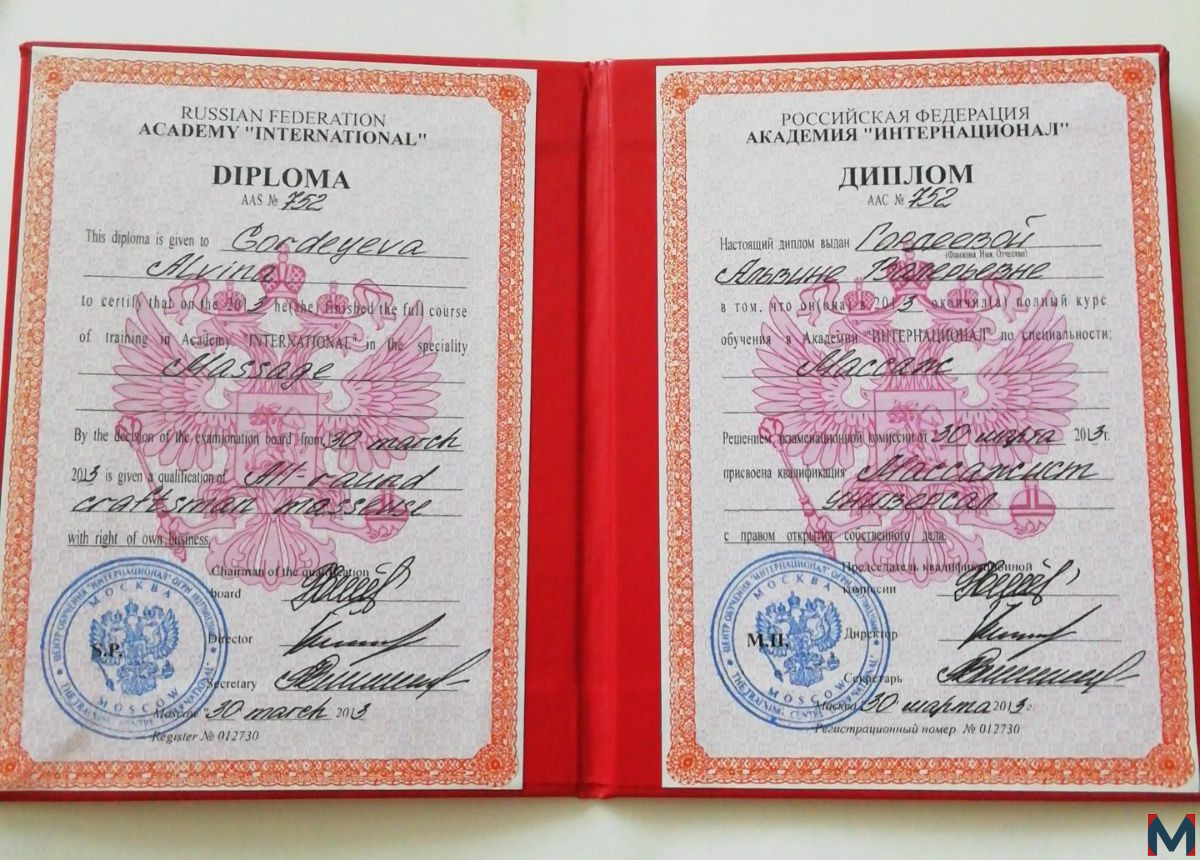 RUSSIAN FEDERATION
ACADEMY "INTERNATIONAL"
DIPLOMA
AAS № 752
This diploma is given to Gordeyeva
Alvina
to certify that on the 2013 he(the) finished the full course
of training in Academy "INTERNATIONAL" in the speciality
Massage
By the decision of the examionation board from 30 march
2013 is given a qualification of All-raund
craftsman masseuse
with right of own business.
Chairman of the qualification
board
Director
S.P.
Secretary
Moscow "30 march 2013
Register № 012730
ЦЕНТР ОБУЧЕНИЯ "ИНТЕРНАЦИОНАЛ" ОГРН
МОСКВА
MOSCOW
THE TRAINING CENTRE INTERNATIONAL
РОССИЙСКАЯ ФЕДЕРАЦИЯ
АКАДЕМИЯ "ИНТЕРНАЦИОНАЛ"
ДИПЛОМ
ААС № 752
Настоящий диплом выдан Гордеевой
(Фамилия, Имя, Отчество)
Альвине Валерьевне
в том, что он(она) в 2013 окончил(а) полный курс
обучения в Академии "ИНТЕРНАЦИОНАЛ" по специальности:
Массаж
Решением экзаменационной комиссии от "30 марта 2013г.
присвоена квалификация Массажист
универсал
с правом открытия собственного дела.
Председатель квалификационной
комиссии
М.П.
Директор
Секретарь
Москва "30" марта 2013г.
Регистрационный номер № 012730
ЦЕНТР ОБУЧЕНИЯ "ИНТЕРНАЦИОНАЛ" ОГРН
МОСКВА
MOSCOW
THE TRAINING CENTRE INTERNATIONAL
M